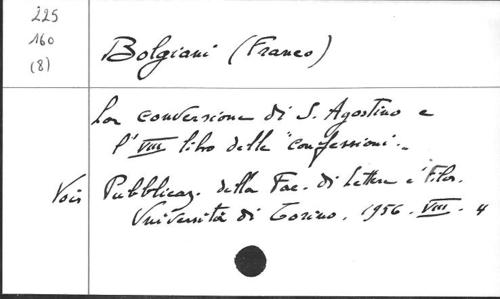 225
160
(8)
Bolgiani (Franco)
La conversione di S. Agostino e
l'VIII libro delle "confessioni".
Voir Pubblicaz. della Fac. di Lettere e Filos.
Università di Torino. 1956. VIII. 4